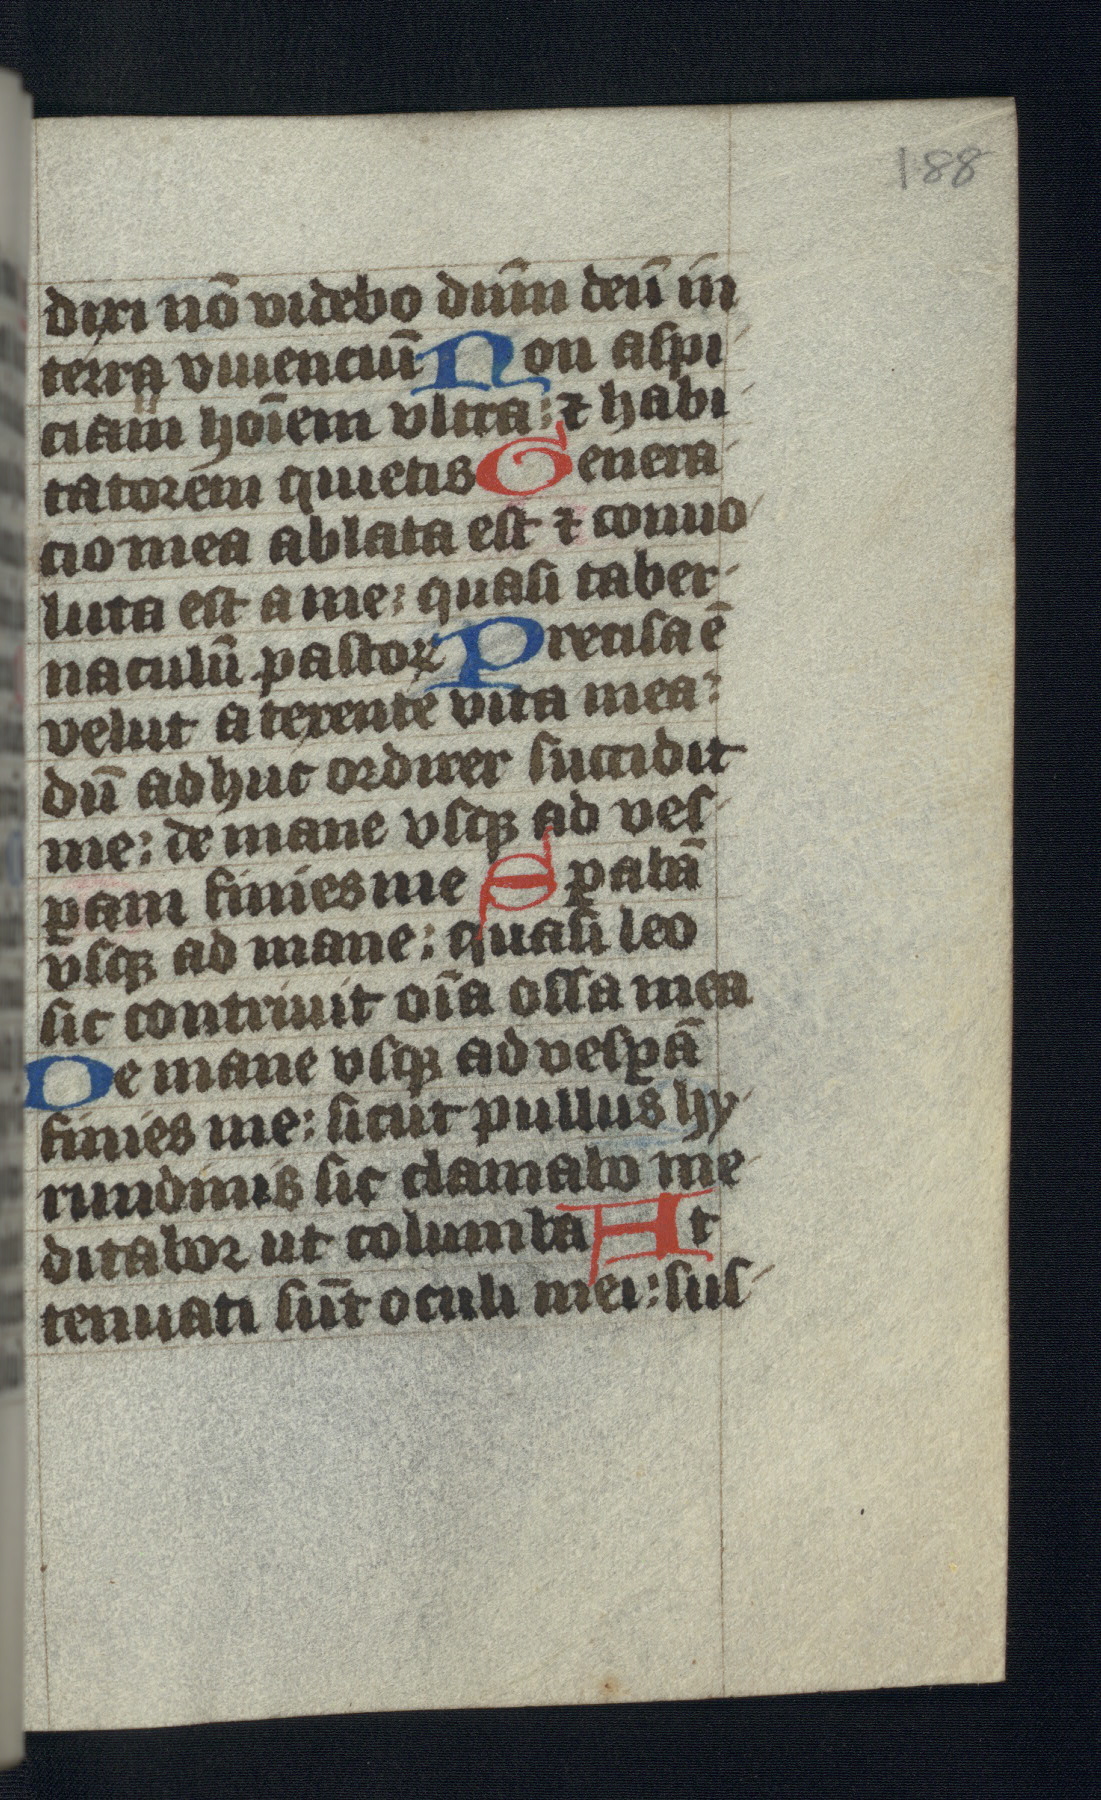 188
dixi nō videbo dnīm deū in
terra viuenciū Non aspi
ciam hoīem vltra : ⁊ habi
tatorem quietis Genera
cio mea ablata est ⁊ conuo
luta est a me : quasi taber-
naculū pastoꝝ Precisa ē
velut a texente vita mea :
dū adhuc ordirer succidit
me : de mane vsqꝫ ad ves-
ꝑam finies me Sꝑabā
vsqꝫ ad mane : quasi leo
sic contriuit oīa ossa mea
De mane vsqꝫ ad vesꝑā
finies me : sicut pullus hy
rundinis sic clamabo me
ditabor ut columba At
tenuati sūt oculi mei : sus